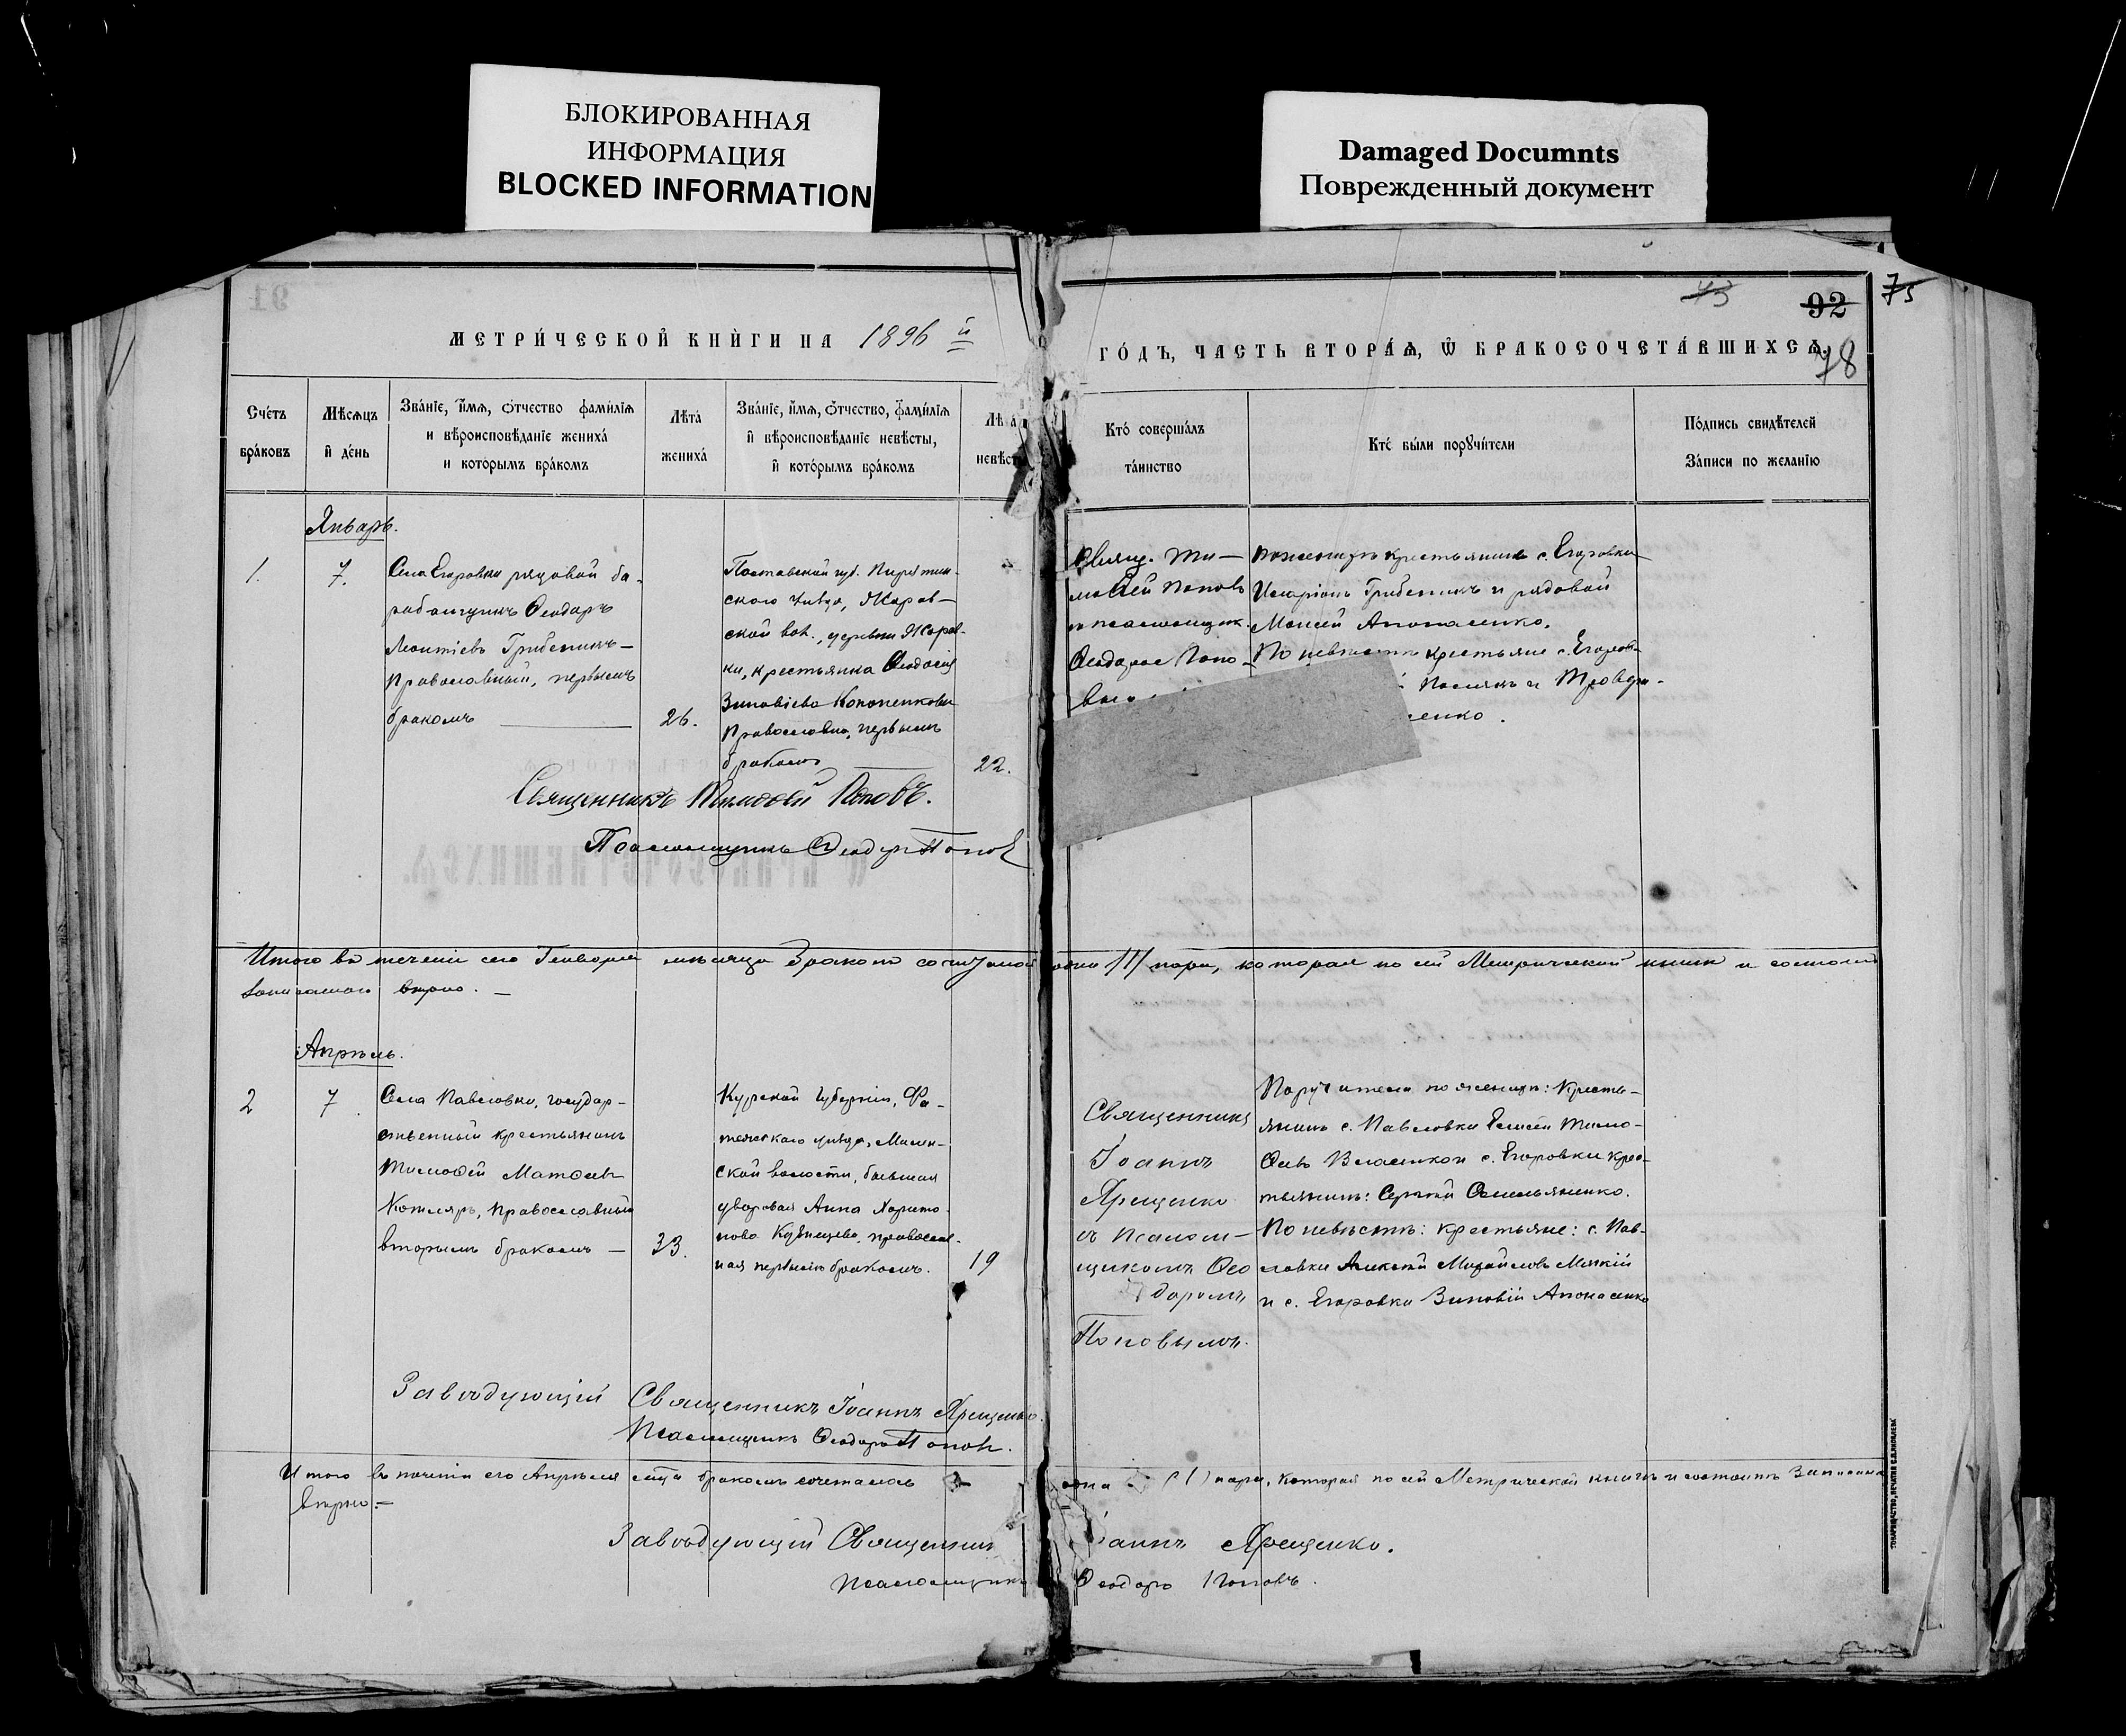 БЛОКИРОВАННАЯ
ИНФОРМАЦИЯ
BLOCKED INFORMATION
Damaged Documnts
Поврежденный документ
92
75
78
МЕТРИ́ЧЕСКОЙ КНИ́ГИ НА 1896 й
ГО́ДЪ, ЧАСТЬ ВТОРА́Ѧ, Ѡ҆ БРАКОСОЧЕТА́ВШИХСѦ.
Сче́тъ
бра́ковъ
Мѣсѧцъ
и҆ де́нь
Зва́нїе, и҆́мѧ, о́тчество фами́лїѧ
и вѣроисповѣ́данїе жениха́
и кото́рымъ бра́комъ
Лѣта́
жениха́
Зва́нїе, и҆́мѧ, о́тчество, фами́лїѧ
и҆ вѣроисповѣ́данїе невѣ́сты,
и҆ кото́рымъ бра́комъ
Лѣ а
невѣст
Кто́ соверша́лъ
та́инство
Кто́ бы́ли порꙋчи́тели
По́дпись свидѣ́телей
За́писи по жела́нїю
Январь.
1.
7.
Села Егоровки рядовой ба-
рабанщикъ Ѳеодоръ
Леонтіевъ Гребеникъ—
православный, первымъ
бракомъ
26.
Полтавской губ. Пирятин-
скаго уѣзда, Жоров-
ской вол., деревни Жоров-
ки, крестьянка Ѳеодосія
Зиновіева Кононенкова
православна, первымъ
бракомъ
22.
Свящ. Ти-
моѳей Поповъ
и псаломщик.
Ѳеодоръ Попо-
По женихѣ крестьянинъ с. Егоровки
Иларіонъ Гребеникъ и рядовой
Моисей Апонасенко.
По невѣстѣ крестьяне с. Егоров-
енко.
Священникъ Тимоѳей Поповъ.
Псаломщикъ Ѳеодоръ Поповъ
Итого въ теченіи сего Генваря мѣсяца бракомъ одна /1/ пара, которая по сей Метрической книгѣ и состоитъ
записаною вѣрно. —
Апрѣль.
2
7
Села Павловки, государ-
ственный крестьянинъ
Тимоѳей Матѳеевъ
Котляръ, православный
вторымъ бракомъ —
33.
Курской губерніи, Фа-
тежскаго уѣзда,
ской волости, бывшая
дворовая Анна Харито-
нова Кузнецова, православ-
ная первымъ бракомъ.
19
Священникъ
Іоаннъ
Ярещенко
съ псалом-
щикомъ Ѳео
доромъ
Поповымъ.
Поручители по женихѣ: кресть-
янинъ с. Павловки Елисей Тимо-
ѳеевъ Власенко и с. Егоровки крес-
тьянинъ: Сергѣй Омельяненко.
По невѣстѣ: крестьяне: с. Пав-
ловки Алексѣй Михайловъ Мяхкій
и с. Егоровки Зиновій Апонасенко
Завѣдующій Священникъ Іоаннъ Ярещенко.
Псаломщикъ Ѳеодоръ Поповъ.
Итого въ теченіи сего Апрѣля м-ца бракомъ сочеталось одна (1) пара, которая по сей Метрической книгѣ и состоитъ записана
вѣрно.—
Завѣдующій Священникъ Іоаннъ Ярещенко.
Псаломщикъ Ѳеодоръ Поповъ.